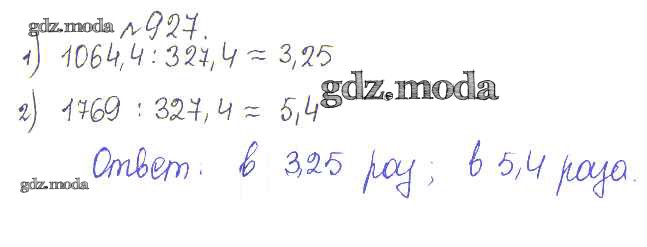 gdz.moda № 927.
1) 1064,4 : 327,4 ≈ 3,25
gdz.moda
2) 1769 : 327,4 ≈ 5,4
Ответ: в 3,25 раз; в 5,4 раза.
gdz.moda